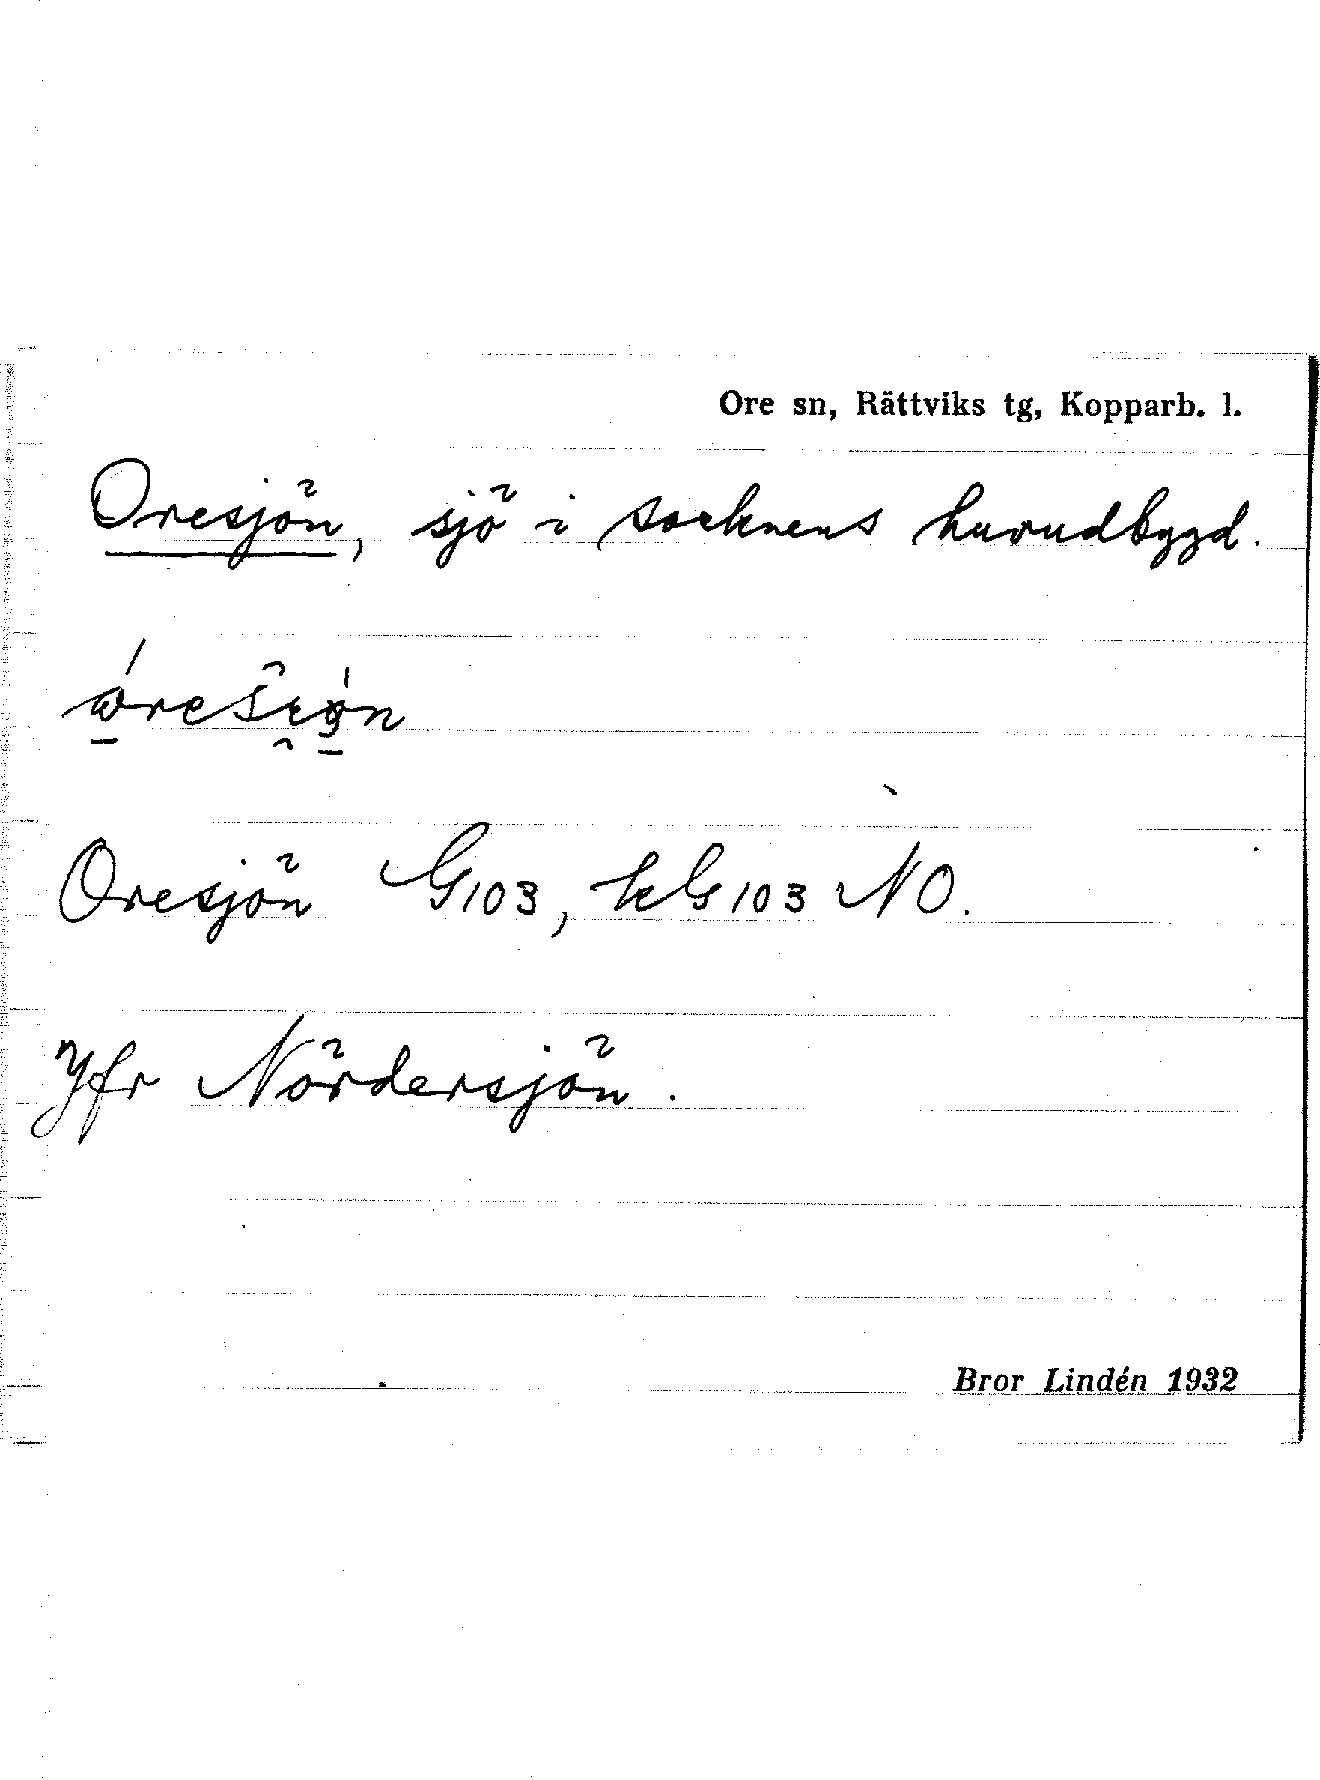 Ore sn, Rättviks tg, Kopparb. l.
Oresjön, sjö i socknens huvudbygd.
Oresjön G103, kG103 NO.
Jfr Nördersjön.
Bror Lindén 1932